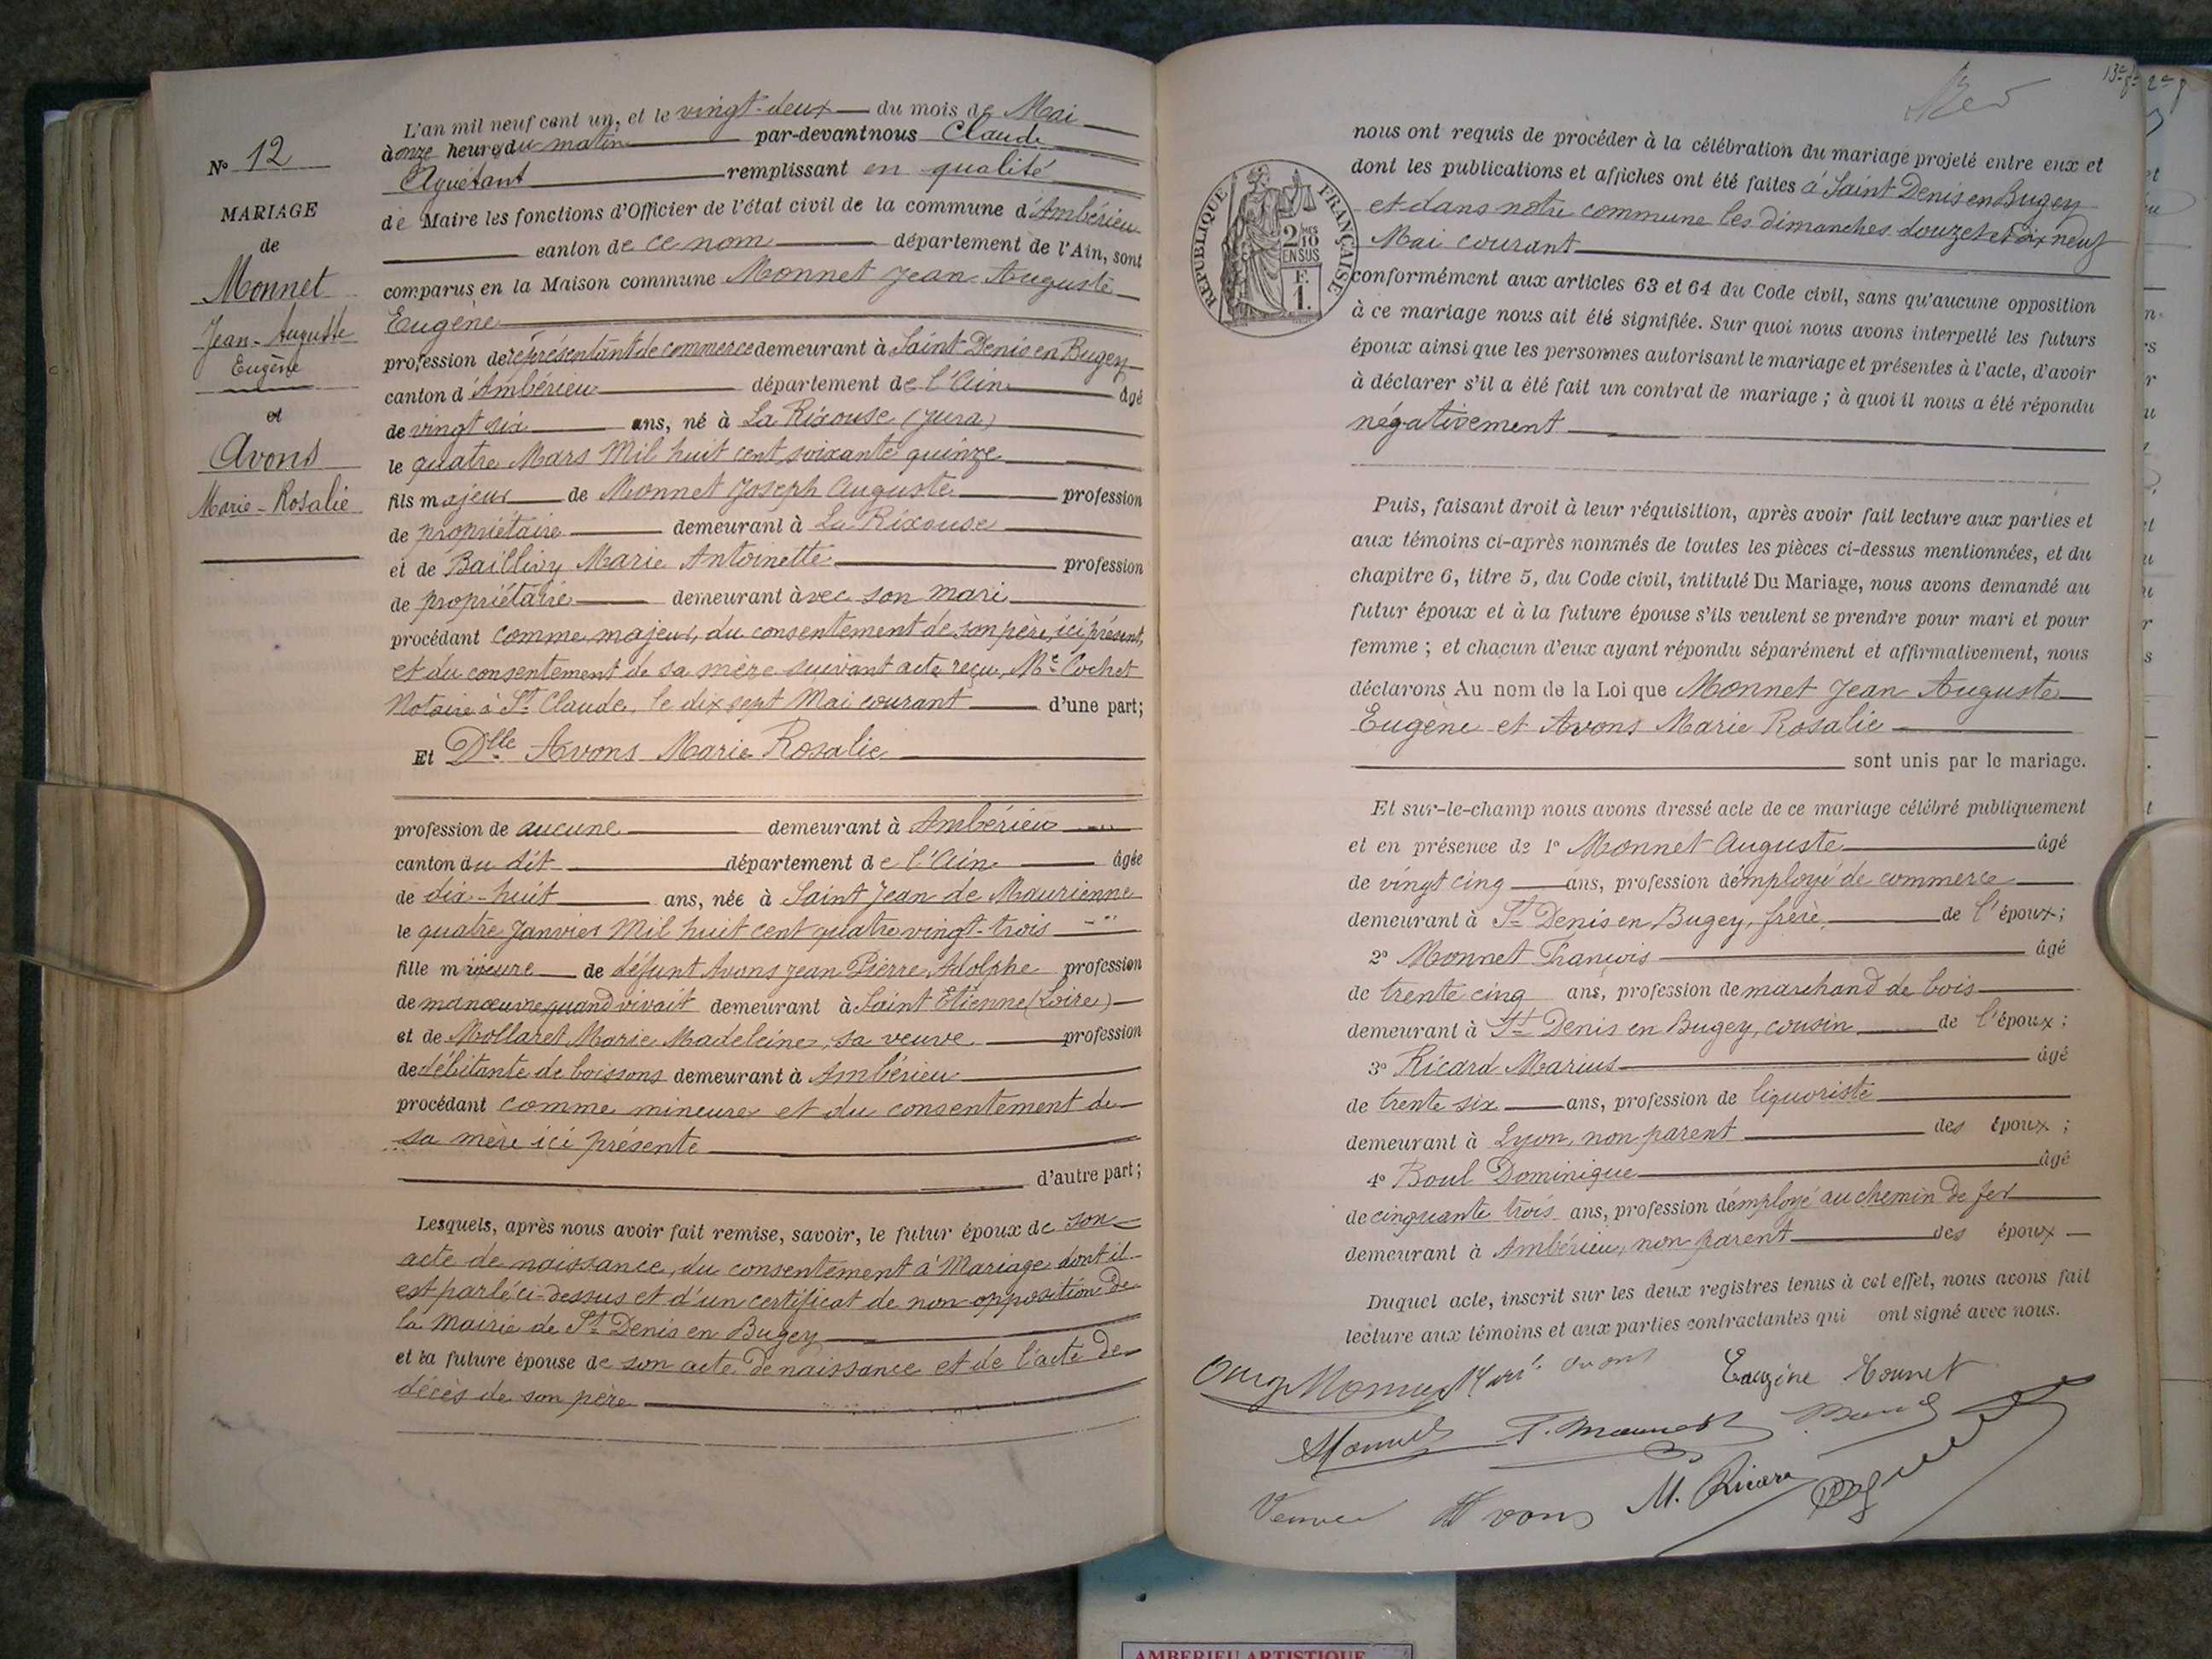 N° 12
MARIAGE
de
Monnet
Jean-Auguste
Eugène
et
Avons
Marie-Rosalie
L'an mil neuf cent un, et le vingt-deux du mois de Mai
à onze heures du matin par-devant nous Claude
Aguétant remplissant en qualité
de Maire les fonctions d'Officier de l'état civil de la commune d'Ambérieu
canton de ce nom département de l'Ain, sont
comparus en la Maison commune Monnet Jean-Auguste
Eugène
profession de représentant de commerce demeurant à Saint Denis en Bugey
canton d'Ambérieu département de l'Ain âgé
de vingt six ans, né à La Rixouse (Jura)
le quatre Mars Mil huit cent soixante quinze
fils majeur de Monnet Joseph Auguste profession
de propriétaire demeurant à La Rixouse
et de Baillivy Marie Antoinette profession
de propriétaire demeurant avec son mari
procédant comme majeur, du consentement de son père, ici présent,
et du consentement de sa mère suivant acte reçu, Me Cochet
Notaire à St Claude, le dix sept Mai courant d'une part;
Et Dlle Avons Marie Rosalie
profession de aucune demeurant à Ambérieu
canton du dit département de l'Ain âgée
de dix-huit ans, née à Saint Jean de Maurienne
le quatre Janvier Mil huit cent quatre vingt-trois
fille mineure de défunt Avons Jean Pierre Adolphe profession
de manœuvre quand vivait demeurant à Saint Etienne (Loire)
et de Mollaret Marie Madeleine, sa veuve profession
de débitante de boissons demeurant à Ambérieu
procédant comme mineure et du consentement de
sa mère ici présente
d'autre part;
Lesquels, après nous avoir fait remise, savoir, le futur époux de son
acte de naissance, du consentement à Mariage dont il
est parlé ci-dessus et d'un certificat de non-opposition de
la Mairie de St Denis en Bugey
et la future épouse de son acte de naissance et de l'acte de
décès de son père
RÉPUBLIQUE FRANÇAISE
2/10 EN SUS
F.
1.
nous ont requis de procéder à la célébration du mariage projeté entre eux et
dont les publications et affiches ont été faites à Saint Denis en Bugey
et dans notre commune les dimanches douze et dix neuf
Mai courant
conformément aux articles 63 et 64 du Code civil, sans qu'aucune opposition
à ce mariage nous ait été signifiée. Sur quoi nous avons interpellé les futurs
époux ainsi que les personnes autorisant le mariage et présentes à l'acte, d'avoir
à déclarer s'il a été fait un contrat de mariage; à quoi il nous a été répondu
négativement
Puis, faisant droit à leur réquisition, après avoir fait lecture aux parties et
aux témoins ci-après nommés de toutes les pièces ci-dessus mentionnées, et du
chapitre 6, titre 5, du Code civil, intitulé Du Mariage, nous avons demandé au
futur époux et à la future épouse s'ils veulent se prendre pour mari et pour
femme; et chacun d'eux ayant répondu séparément et affirmativement, nous
déclarons Au nom de la Loi que Monnet Jean Auguste
Eugène et Avons Marie Rosalie
sont unis par le mariage.
Et sur-le-champ nous avons dressé acte de ce mariage célébré publiquement
et en présence de 1° Monnet Auguste âgé
de vingt cinq ans, profession d'employé de commerce
demeurant à St Denis en Bugey, frère de l'époux;
2° Monnet François âgé
de trente cinq ans, profession de marchand de bois
demeurant à St Denis en Bugey, cousin de l'époux;
3° Ricard Marius âgé
de trente six ans, profession de liquoriste
demeurant à Lyon, non parent des époux;
4° Boul Dominique âgé
de cinquante trois ans, profession d'employé au chemin de fer
demeurant à Ambérieu, non parent des époux
Duquel acte, inscrit sur les deux registres tenus à cet effet, nous avons fait
lecture aux témoins et aux parties contractantes qui ont signé avec nous.
Monnet Marie Avons Eugène Monnet
Monnet F. Monnet
Veuve Avons M. Ricard
AMBERIEU ARTISTIQUE